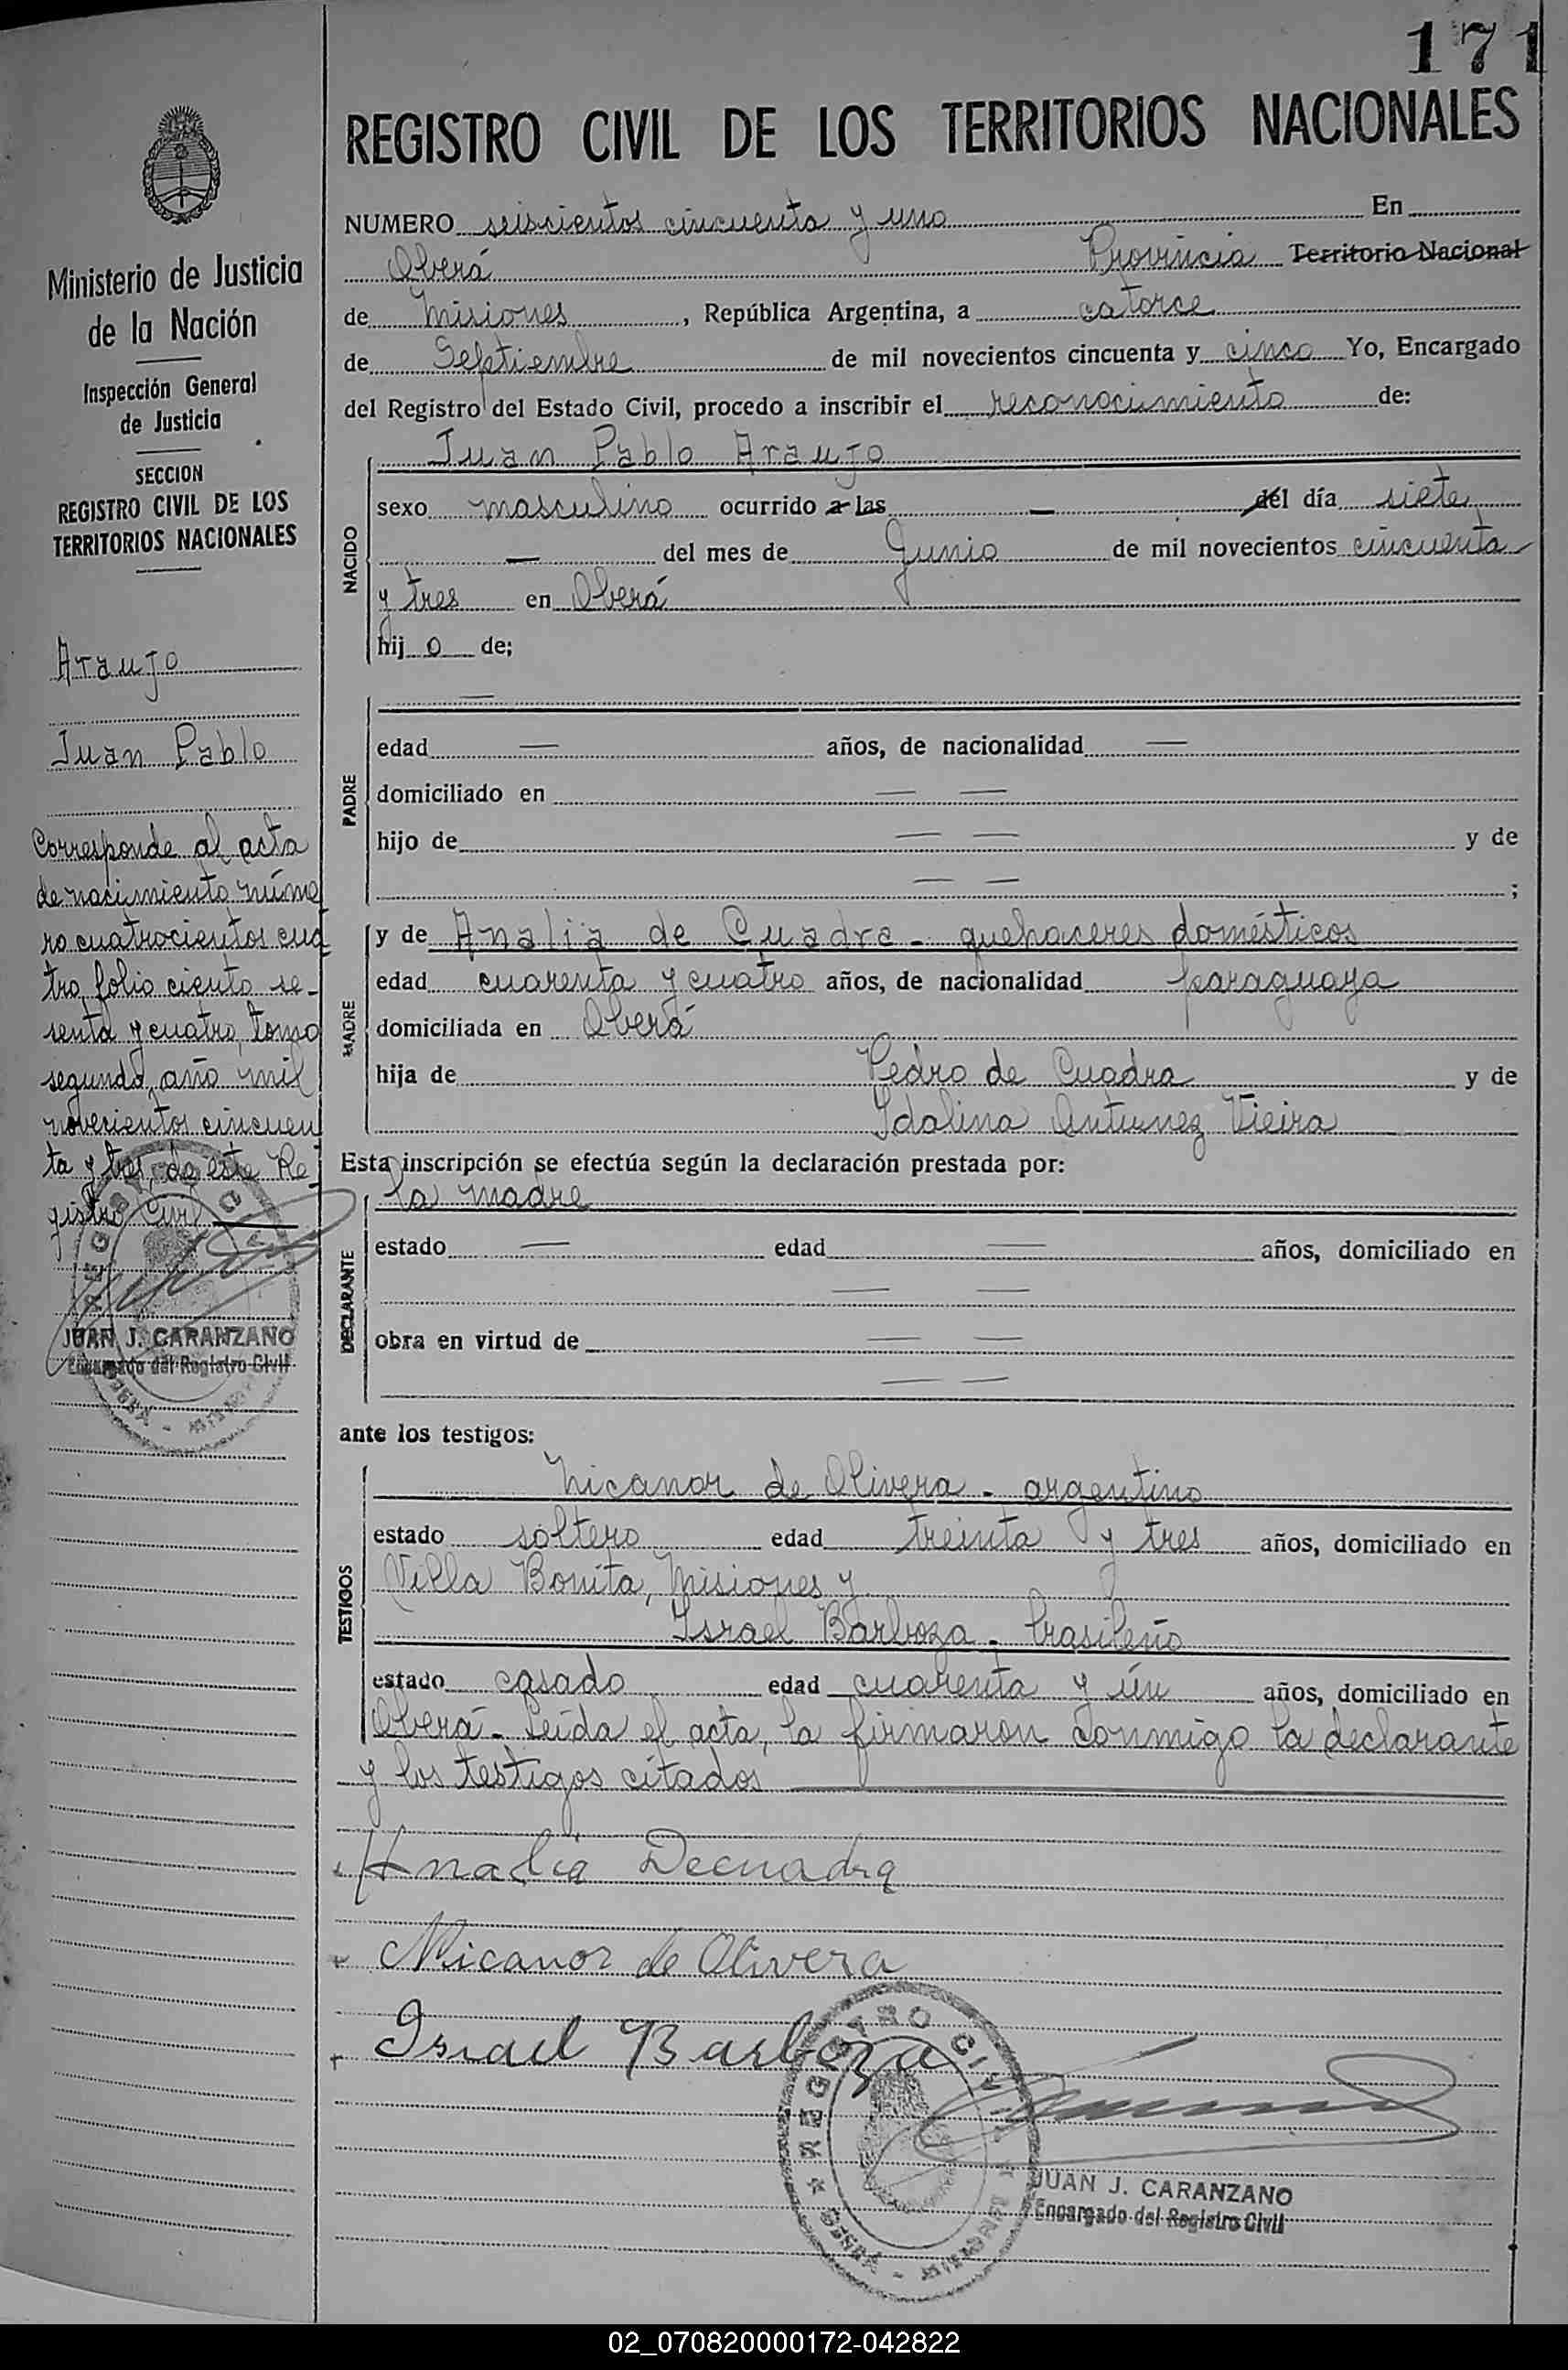 171
REGISTRO CIVIL DE LOS TERRITORIOS NACIONALES
Ministerio de Justicia
de la Nación
Inspección General
de Justicia
SECCION
REGISTRO CIVIL DE LOS
TERRITORIOS NACIONALES
Araujo
Juan Pablo
Corresponde al acta
de nacimiento núme
ro cuatrocientos cua
tro, folio ciento se-
senta y cuatro, tomo
segundo, año mil
novecientos cincuen
ta y tres, de este Re-
gistro Civil
JUAN J. CARANZANO
Encargado del Registro Civil
NUMERO seiscientos cincuenta y uno En
Oberá Provincia Territorio Nacional
de Misiones, República Argentina, a catorce
de Septiembre de mil novecientos cincuenta y cinco Yo, Encargado
del Registro del Estado Civil, procedo a inscribir el reconocimiento de:
NACIDO
Juan Pablo Araujo
sexo masculino ocurrido a las — del día siete
— del mes de Junio de mil novecientos cincuenta
y tres en Oberá
hij o de;
PADRE
—
edad — años, de nacionalidad —
domiciliado en — —
hijo de — — y de
— — ;
MADRE
y de Analia de Cuadra - quehaceres domésticos
edad cuarenta y cuatro años, de nacionalidad paraguaya
domiciliada en Oberá
hija de Pedro de Cuadra y de
Idalina Antunez Vieira
Esta inscripción se efectúa según la declaración prestada por:
DECLARANTE
la madre
estado — edad — años, domiciliado en
— —
obra en virtud de — —
— —
ante los testigos:
TESTIGOS
Nicanor de Olivera - argentino
estado soltero edad treinta y tres años, domiciliado en
Villa Bonita, Misiones y
Israel Barboza - brasileño
estado casado edad cuarenta y ún años, domiciliado en
Oberá - Leída el acta, la firmaron conmigo la declarante
y los testigos citados
Analia Decuadra
Nicanor de Olivera
Israel Barboza
REGISTRO CIVIL
JUAN J. CARANZANO
Encargado del Registro Civil
02_070820000172-042822